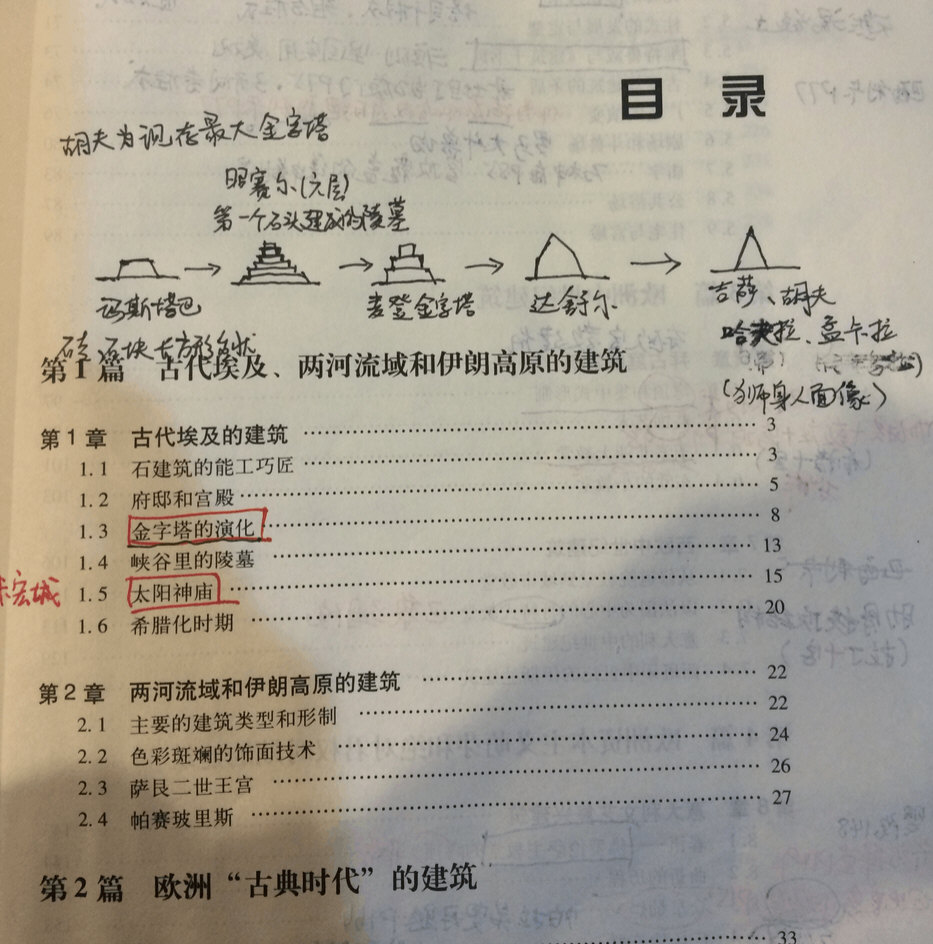 目 录
胡夫为现存最大金字塔
昭赛尔(六层)
第一个石头建成的陵墓
玛斯塔巴
麦登金字塔
达舒尔
吉萨、胡夫
哈夫拉、孟卡拉
(狮身人面像)
第1篇 古代埃及、两河流域和伊朗高原的建筑
第1章 古代埃及的建筑 3
1.1 石建筑的能工巧匠 3
1.2 府邸和宫殿 5
1.3 金字塔的演化 8
1.4 峡谷里的陵墓 13
1.5 太阳神庙 15
1.6 希腊化时期 20
第2章 两河流域和伊朗高原的建筑 22
2.1 主要的建筑类型和形制 22
2.2 色彩斑斓的饰面技术 24
2.3 萨艮二世王宫 26
2.4 帕赛玻里斯 27
第2篇 欧洲“古典时代”的建筑
33